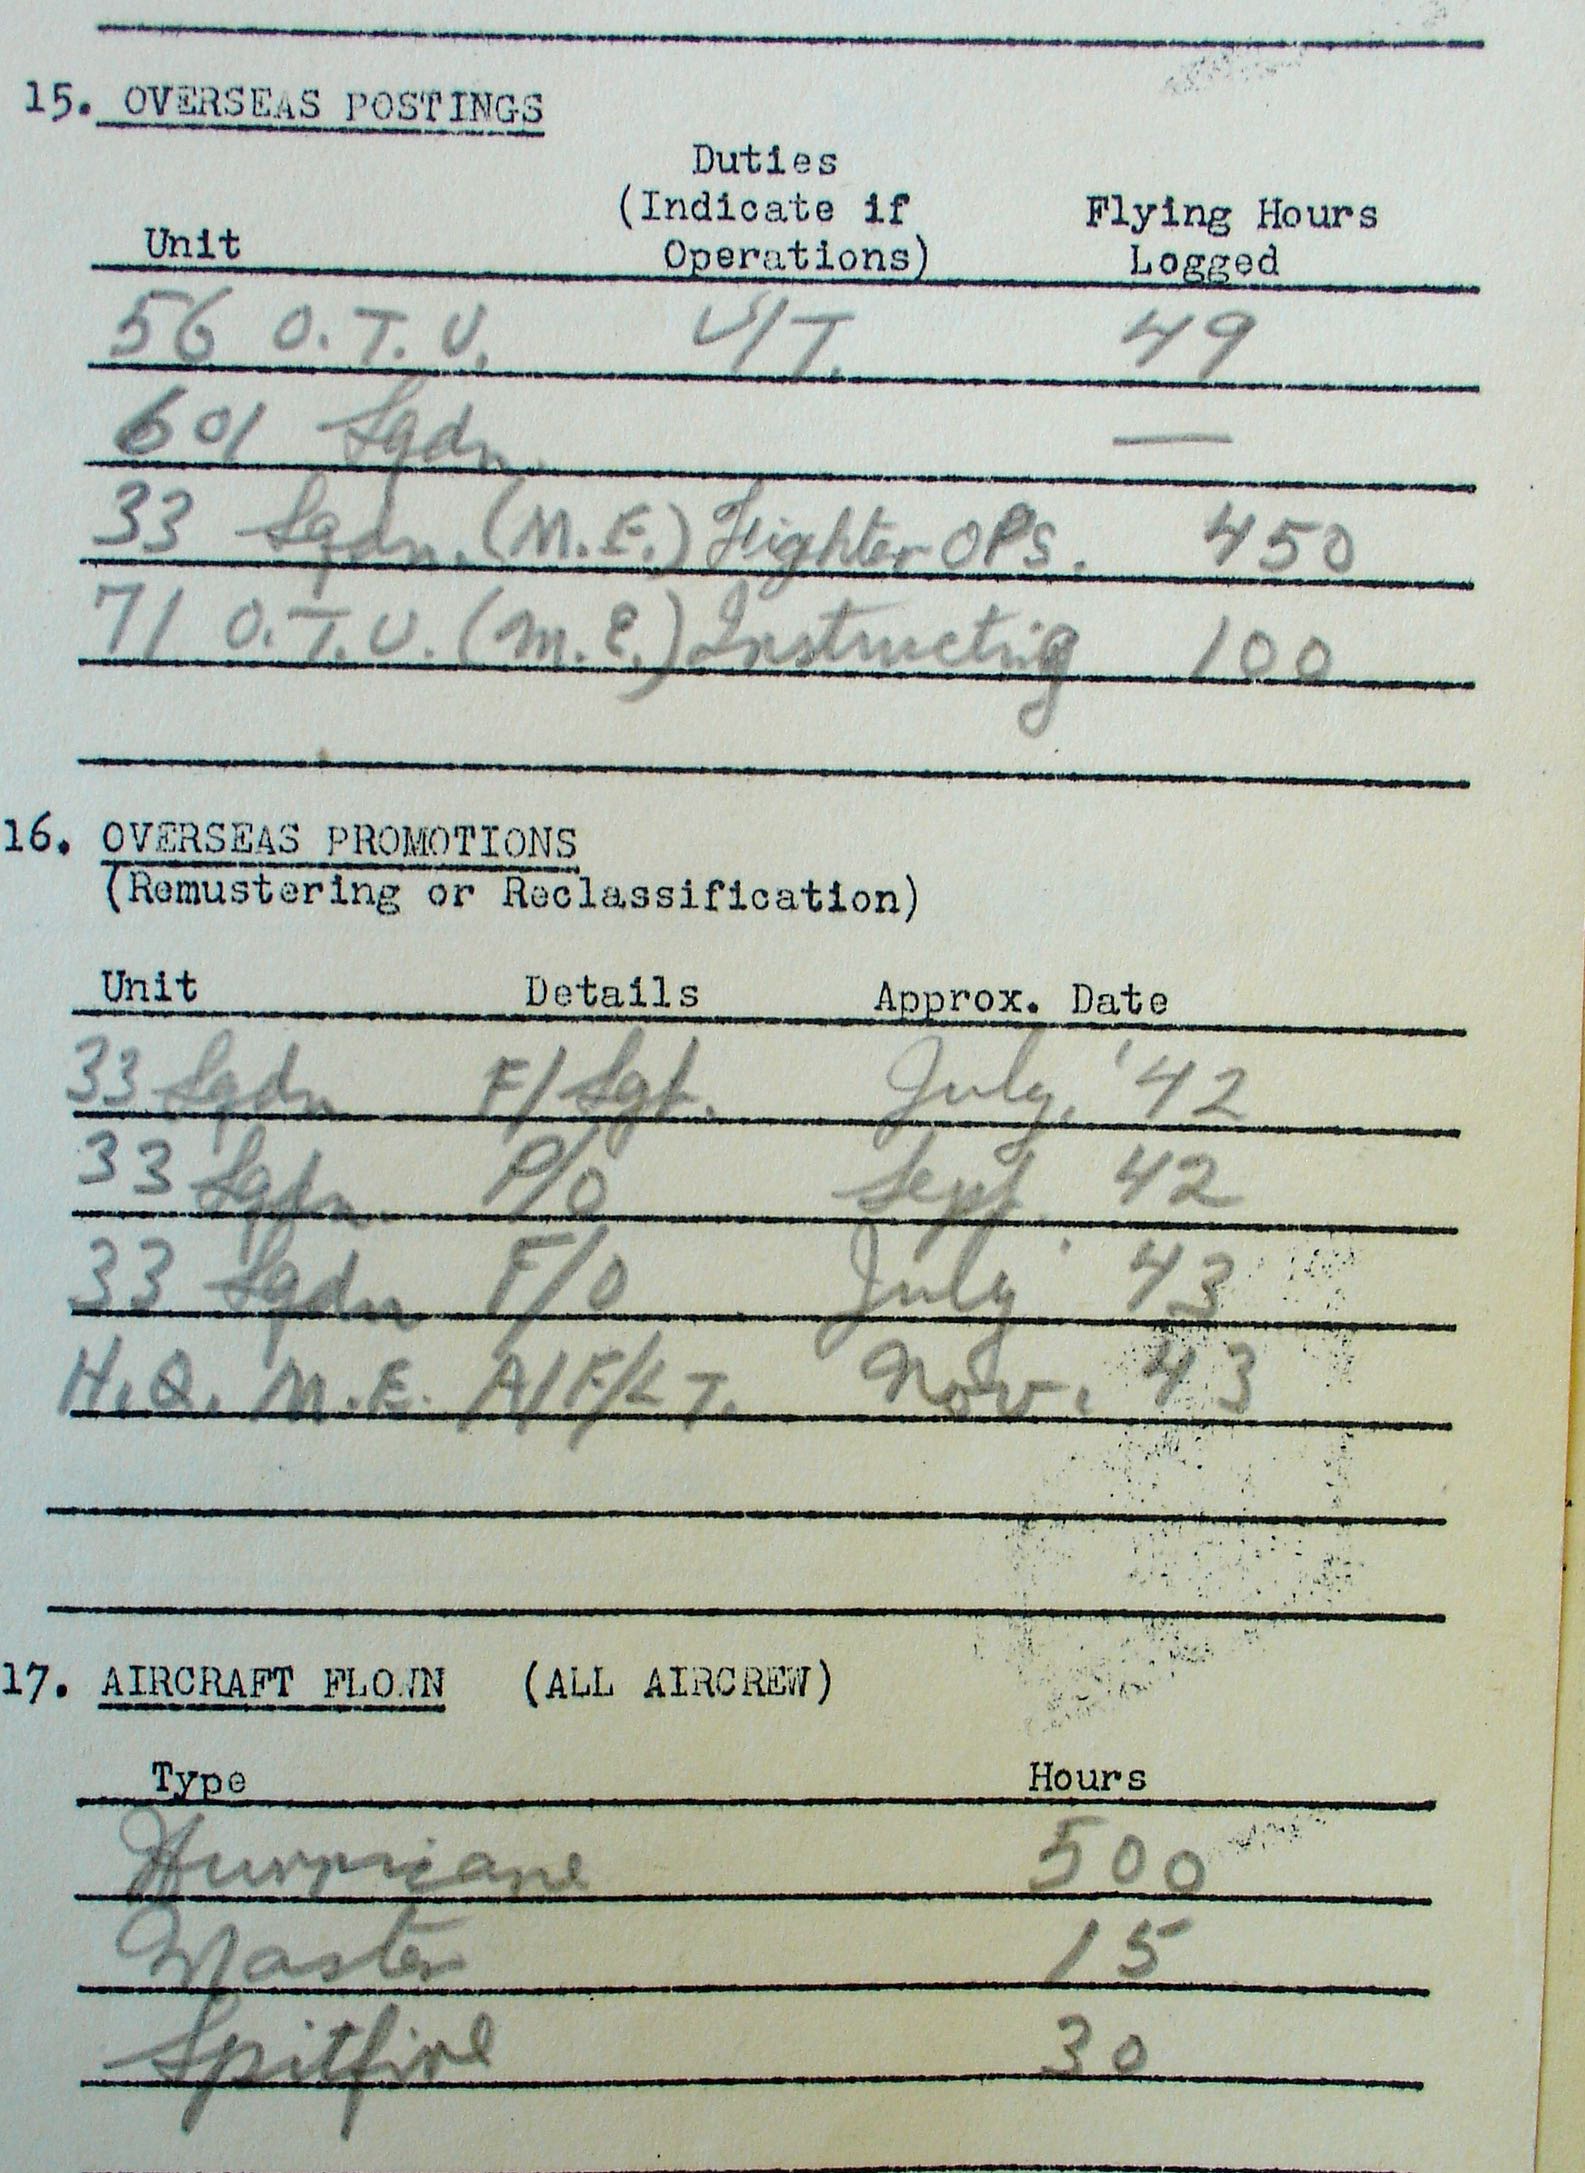 15. OVERSEAS POSTINGS
Duties
(Indicate if Flying Hours
Unit Operations) Logged
56 O.T.U. U/T. 49
601 Sqdn. —
33 Sqdn. (M.E.) Fighter OPs. 450
71 O.T.U. (M.E.) Instructing 100
16. OVERSEAS PROMOTIONS
(Remustering or Reclassification)
Unit Details Approx. Date
33 Sqdn F/Sgt. July, '42
33 Sqdn. P/O Sept. 42
33 Sqdn F/O July 43
H.Q. M.E. A/F/LT. Nov. 43
17. AIRCRAFT FLOWN (ALL AIRCREW)
Type Hours
Hurricane 500
Master 15
Spitfire 30